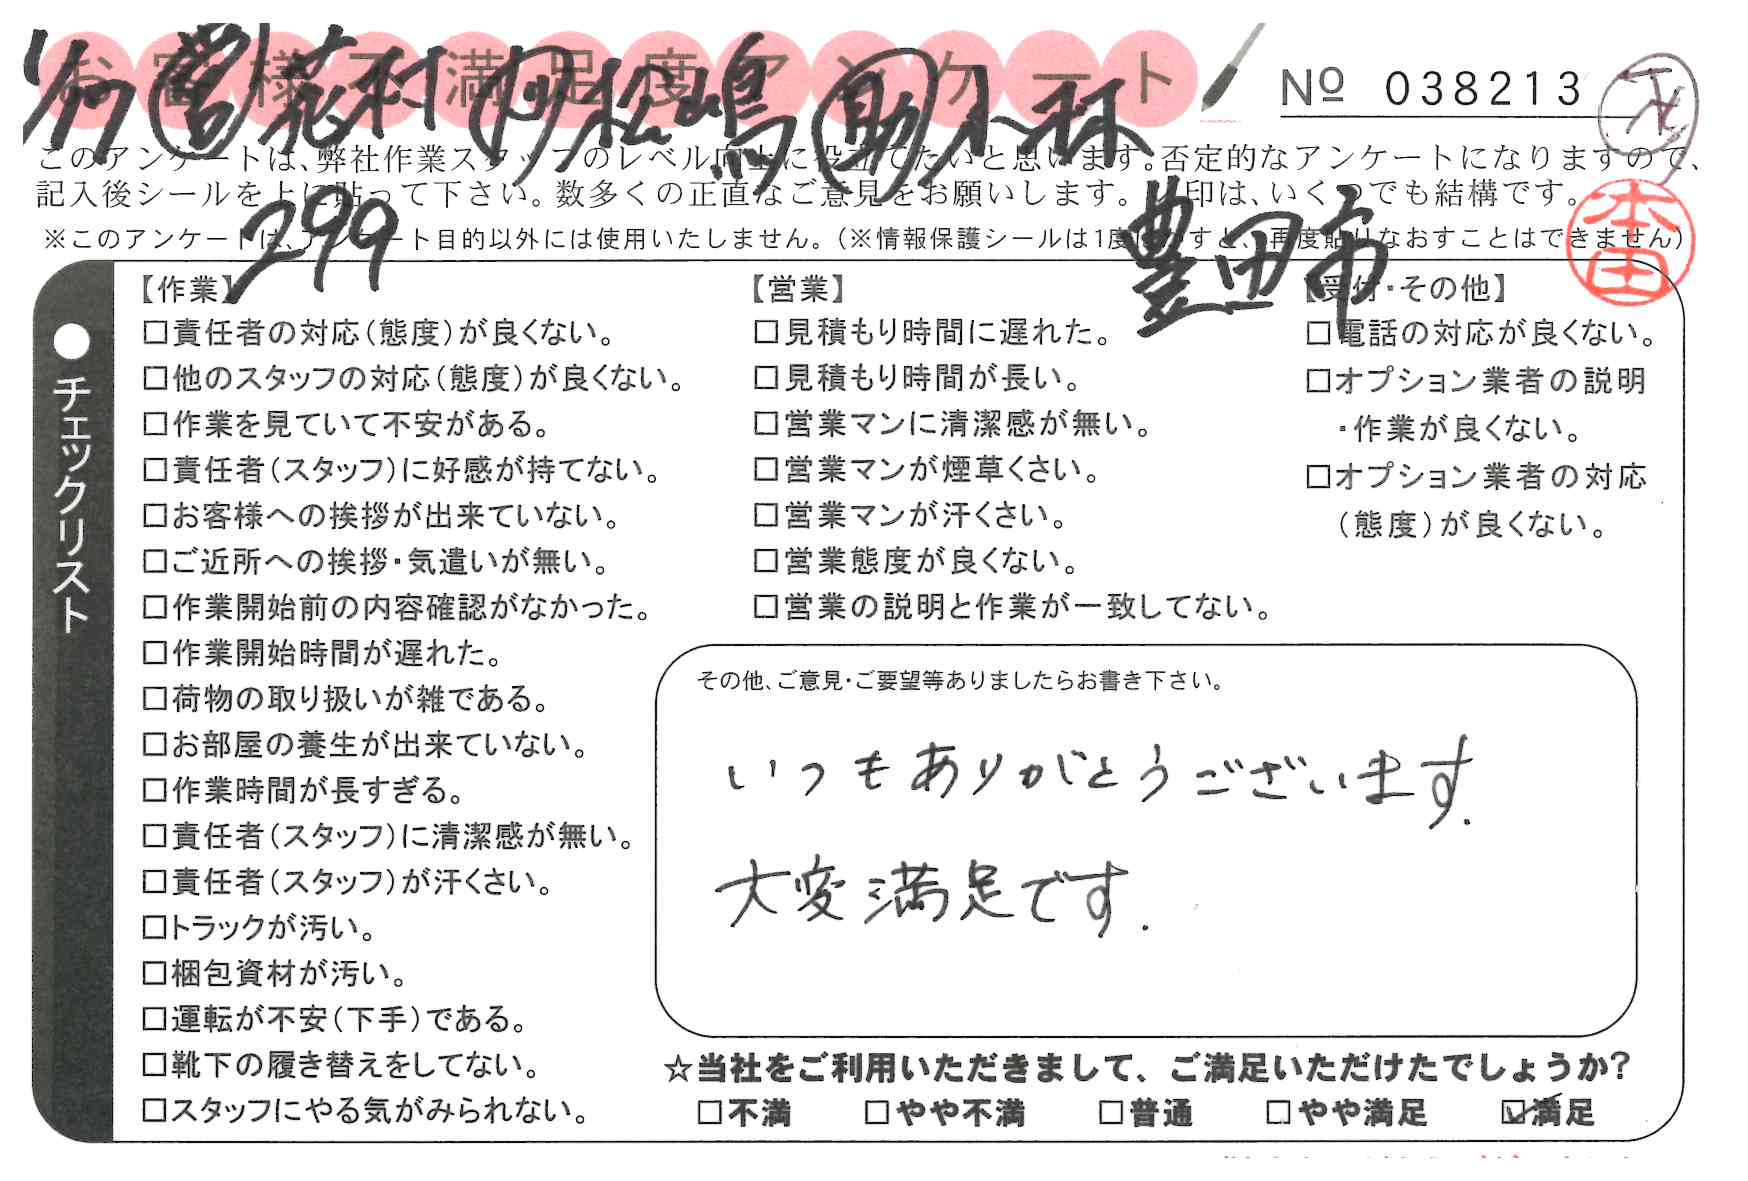 お客様不満足度アンケート
№ 038213
1/17 営 花村 松嶋 助 小林
このアンケートは、弊社作業スタッフのレベル向上に役立てたいと思います。否定的なアンケートになりますので、
記入後シールを上に貼って下さい。数多くの正直なご意見をお願いします。レ印は、いくつでも結構です。
299
豊田市
本田
※このアンケートは、アンケート目的以外には使用いたしません。(※情報保護シールは1度はがすと、再度貼りなおすことはできません)
●チェックリスト
【作業】
□責任者の対応(態度)が良くない。
□他のスタッフの対応(態度)が良くない。
□作業を見ていて不安がある。
□責任者(スタッフ)に好感が持てない。
□お客様への挨拶が出来ていない。
□ご近所への挨拶・気遣いが無い。
□作業開始前の内容確認がなかった。
□作業開始時間が遅れた。
□荷物の取り扱いが雑である。
□お部屋の養生が出来ていない。
□作業時間が長すぎる。
□責任者(スタッフ)に清潔感が無い。
□責任者(スタッフ)が汗くさい。
□トラックが汚い。
□梱包資材が汚い。
□運転が不安(下手)である。
□靴下の履き替えをしてない。
□スタッフにやる気がみられない。
【営業】
□見積もり時間に遅れた。
□見積もり時間が長い。
□営業マンに清潔感が無い。
□営業マンが煙草くさい。
□営業マンが汗くさい。
□営業態度が良くない。
□営業の説明と作業が一致してない。
【受付・その他】
□電話の対応が良くない。
□オプション業者の説明
・作業が良くない。
□オプション業者の対応
(態度)が良くない。
その他、ご意見・ご要望等ありましたらお書き下さい。
いつもありがとうございます.
大変満足です.
☆当社をご利用いただきまして、ご満足いただけたでしょうか?
□不満 □やや不満 □普通 □やや満足 ☑満足